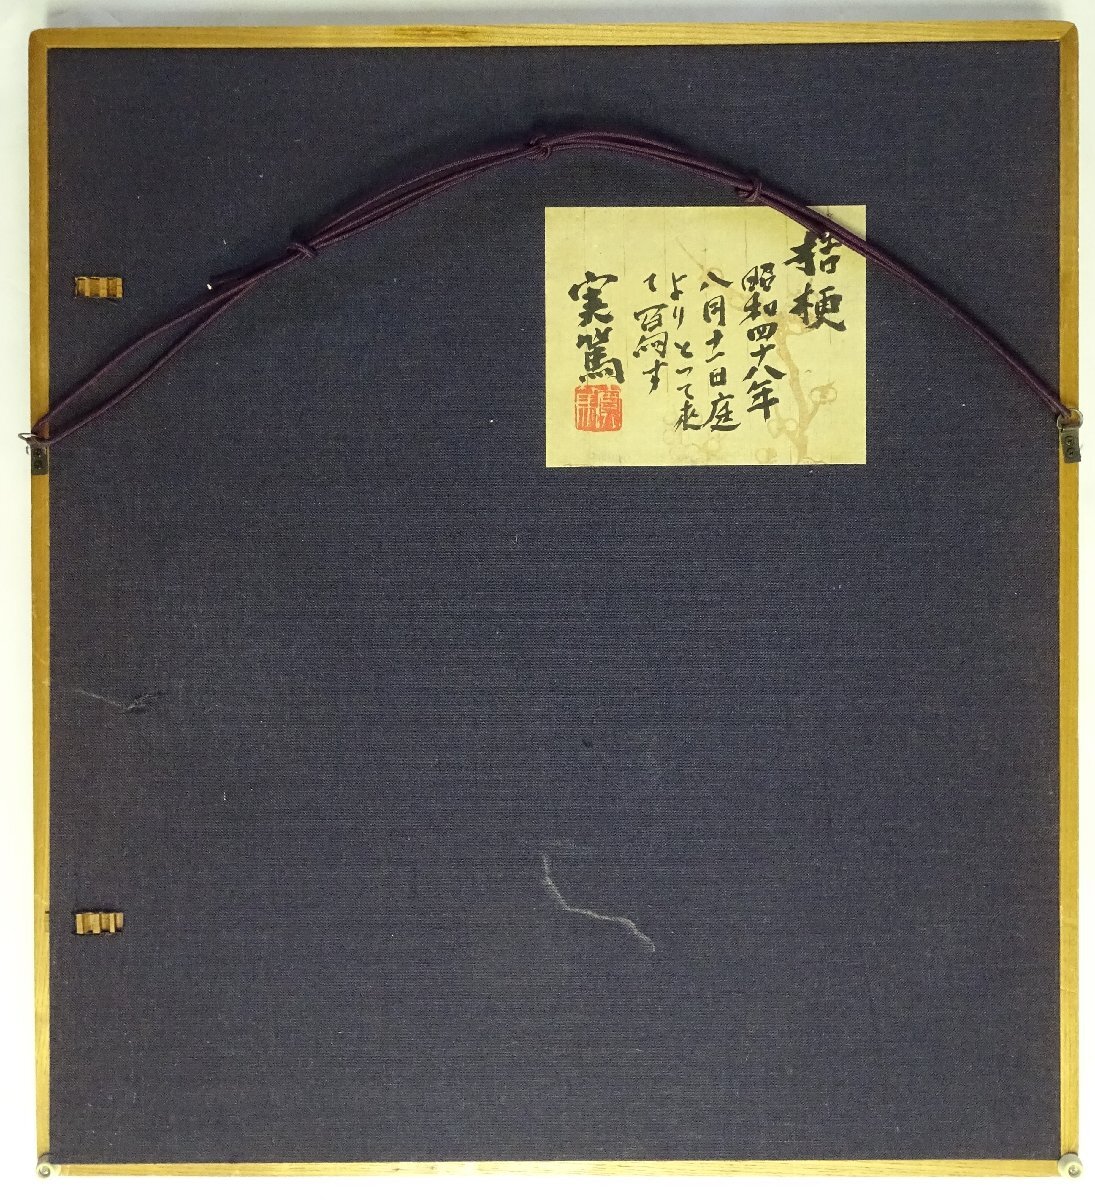 桔梗
昭和四十八年
八月十一日庭
よりとって来
て写す
実篤